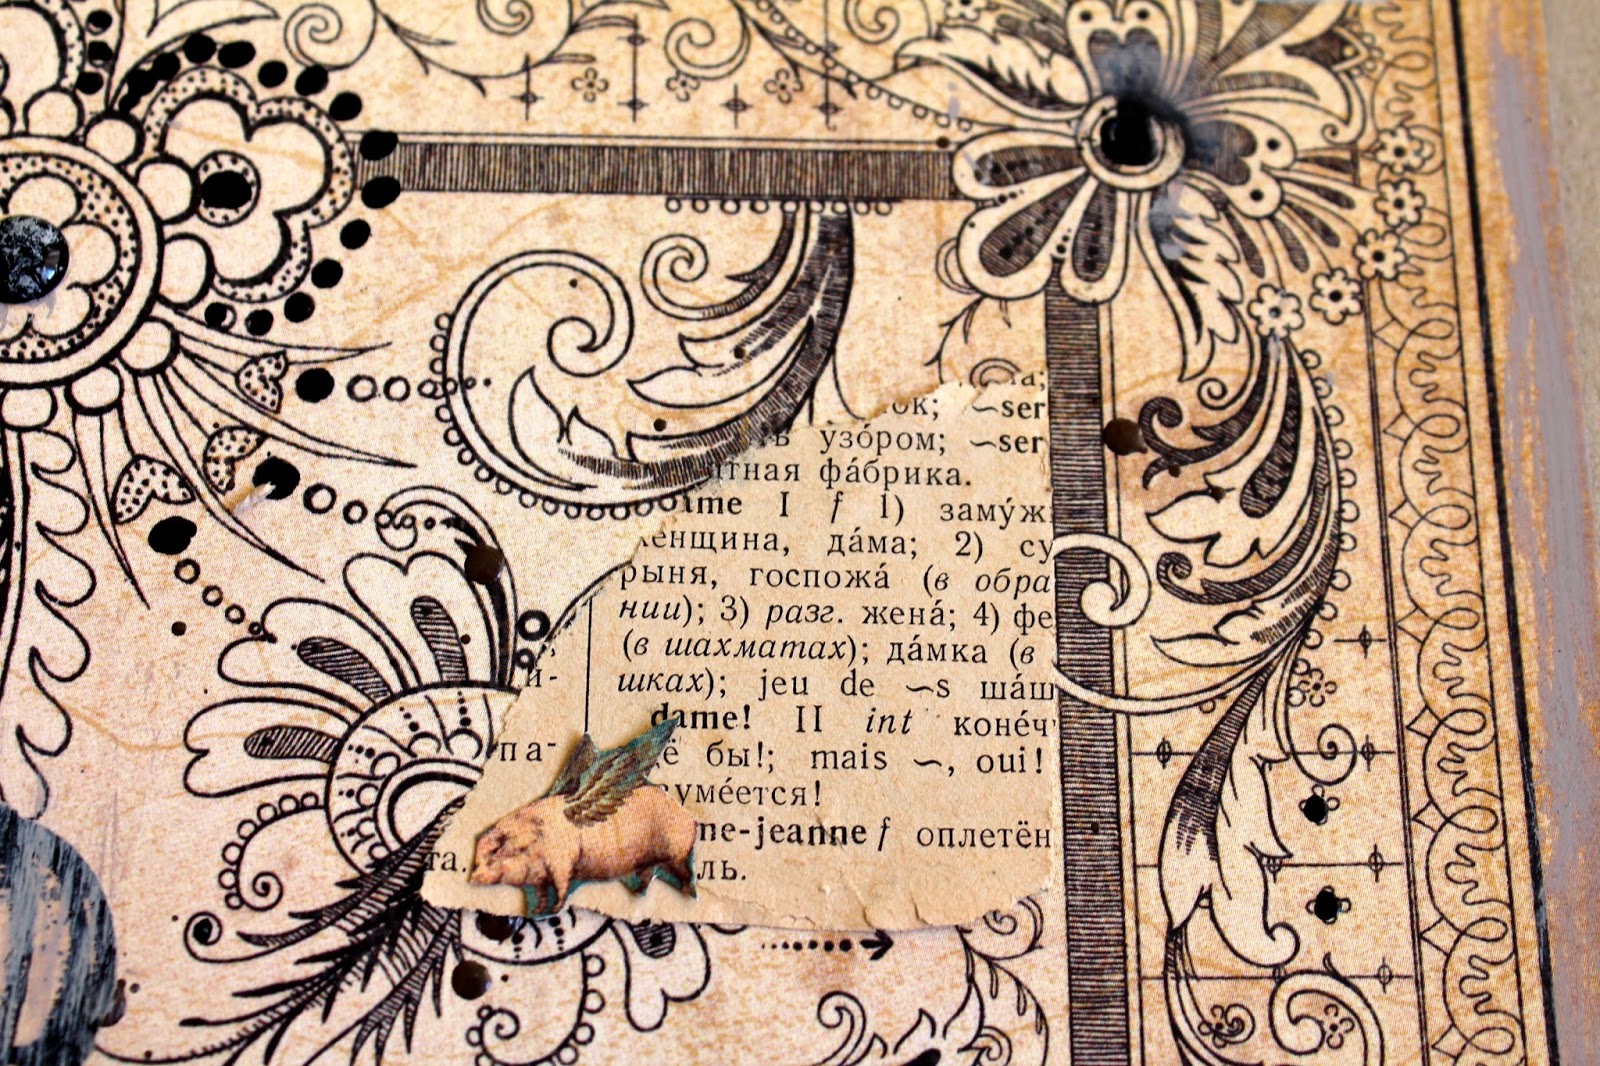 ser
узо́ром; ∽ser
фа́брика.
I f 1) заму́ж
женщина, да́ма; 2) су
рыня, госпожа́ (в обра
нии); 3) разг. жена́; 4) фе
(в шахматах); да́мка (в
шках); jeu de ∽s ша́ш
й-
dame! II int коне́ч
па-
бы!; mais ∽, oui!
зуме́ется!
me-jeanne f оплетён
та.
ль.